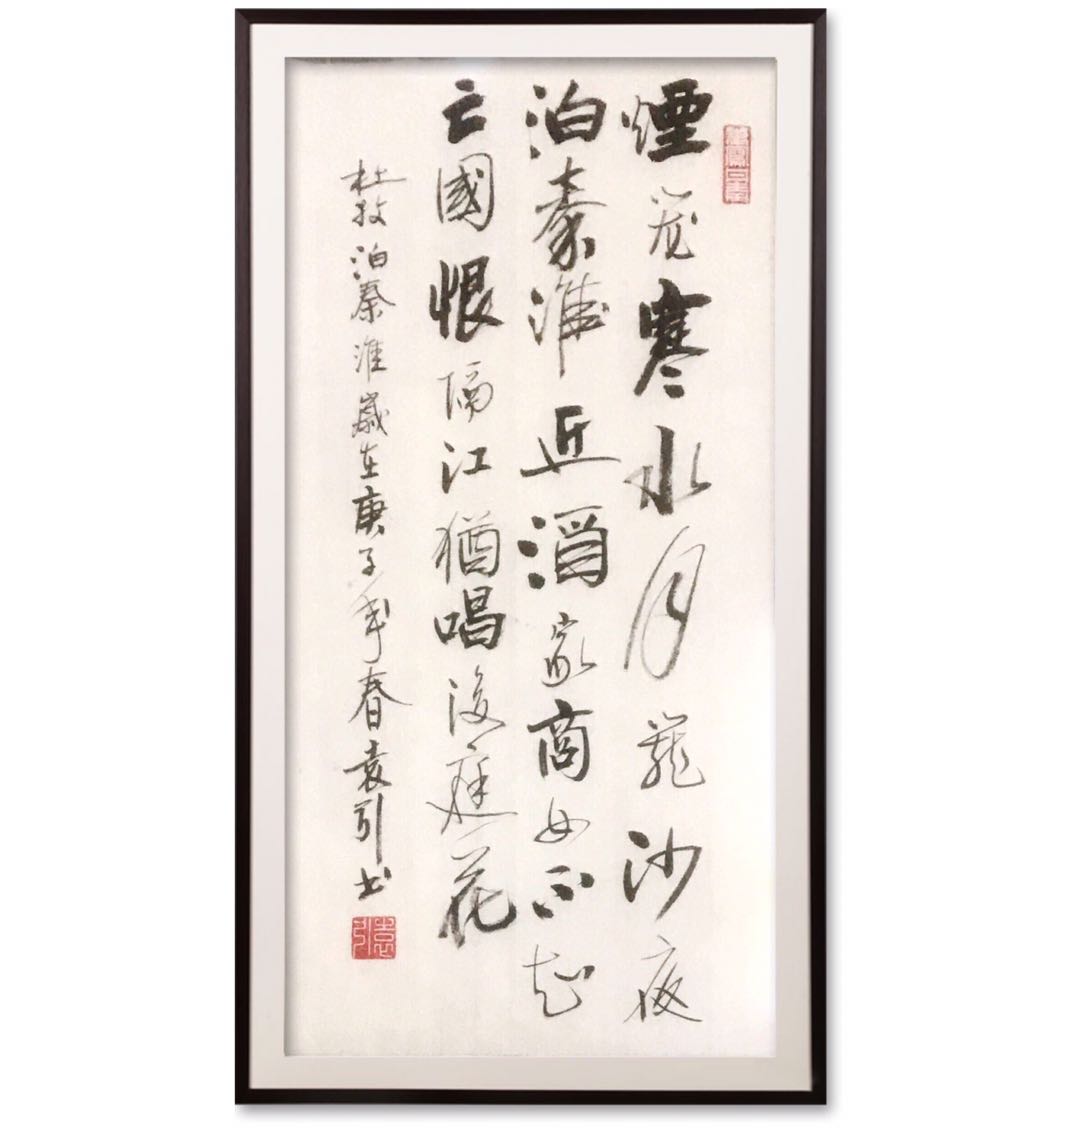 煙笼寒水月籠沙夜
泊秦淮近酒家商女不知
亡國恨隔江猶唱後庭花
杜牧泊秦淮歲在庚子年春袁引书
袁引